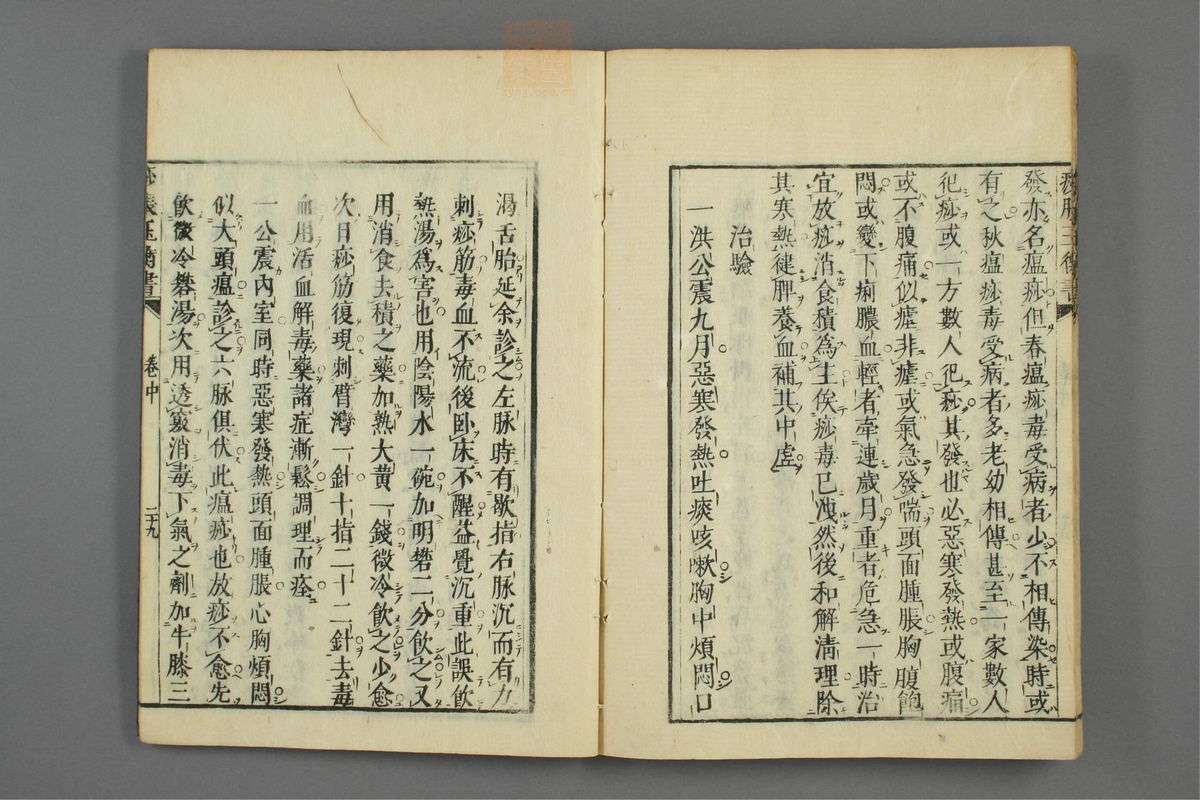 發亦名瘟痧但春瘟痧毒受病者少不相傳染時或
有之秋瘟痧毒受病者多老幼相傳甚至一家數人
犯痧或一方數人犯痧其發也必惡寒發熱或腹痛
或不腹痛似瘧非瘧或氣急發喘頭面腫脹胸腹飽
悶或變下痢膿血輕者牽連歲月重者危急一時治
宜放痧消食積為主俟痧毒已洩然後和解清理除
其寒熱健脾養血補其中虛
治驗
一洪公震九月惡寒發熱吐痰咳嗽胸中煩悶口
渴舌胎延余診之左脉時有歇指右脉沉而有力
刺痧筋毒血不流後卧床不醒益覺沉重此誤飲
熱湯為害也用陰陽水一碗加明礬二分飲之又
用消食去積之藥加熟大黄一錢微冷飲之少愈
次日痧筋復現刺臂灣一針十指二十二針去毒
血用活血解毒藥諸症漸鬆調理而痊
一公震內室同時惡寒發熱頭面腫脹心胸煩悶
似大頭瘟診之六脉俱伏此瘟痧也放痧不愈先
飲微冷礬湯次用透竅消毒下氣之劑加牛膝三
痧脹玉衡書
卷中
二十九